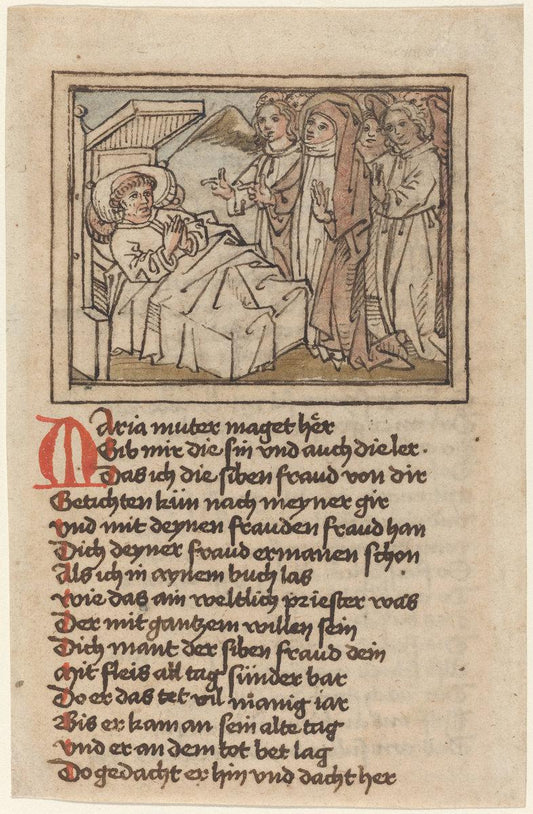 Maria muter maget her
Gib mir die sin vnd auch die ler.
Das ich die siben fraud von dir
Getichten kün nach meyner gir
vnd mit deynen frauden fraud han
Dich deyner fraud ermanen schon
Als ich in aynem buch las
wie das ain weltlich priester was
Der mit gantzem willen sein
Dich mant der siben fraud dein
Mit fleis all tag sünder bar
Do er das tet vil manig iar
Bis er kam an sein alte tag
vnd er an dem tot bet lag
Do gedacht er hin vnd dacht her